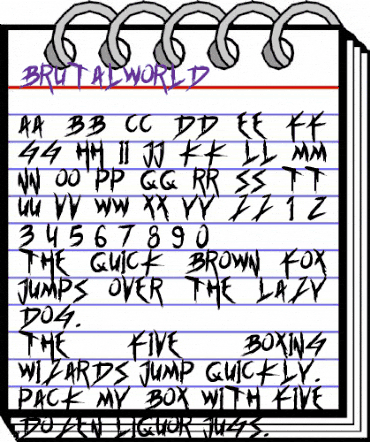 BRUTALWORLD
AA BB CC DD EE FF
GG HH II JJ KK LL MM
NN OO PP QQ RR SS TT
UU VV WW XX YY ZZ 1 2
3 4 5 6 7 8 9 0
THE QUICK BROWN FOX
JUMPS OVER THE LAZY
DOG.
THE FIVE BOXING
WIZARDS JUMP QUICKLY.
PACK MY BOX WITH FIVE
DOZEN LIQUOR JUGS.